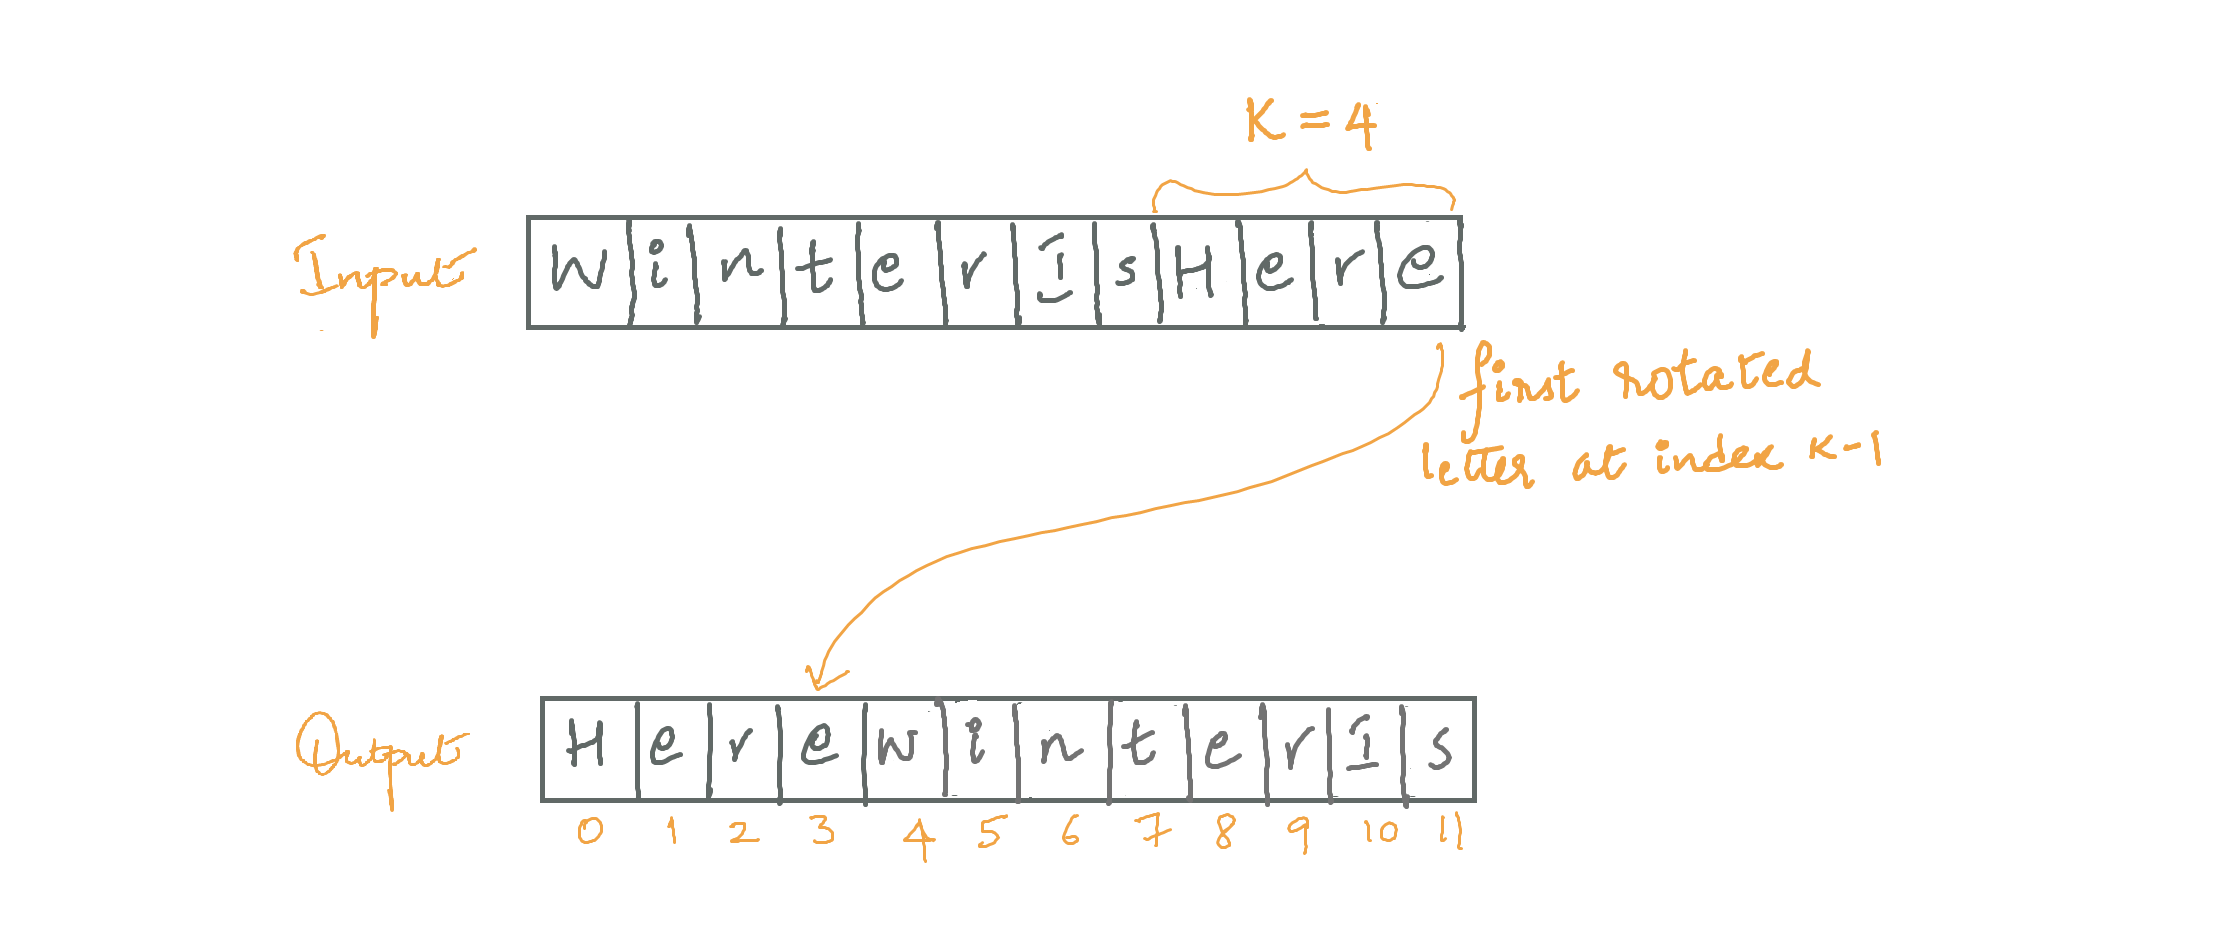 K = 4
Input W i n t e r I s H e r e
first rotated
letter at index K-1
Output H e r e W i n t e r I s
0 1 2 3 4 5 6 7 8 9 10 11